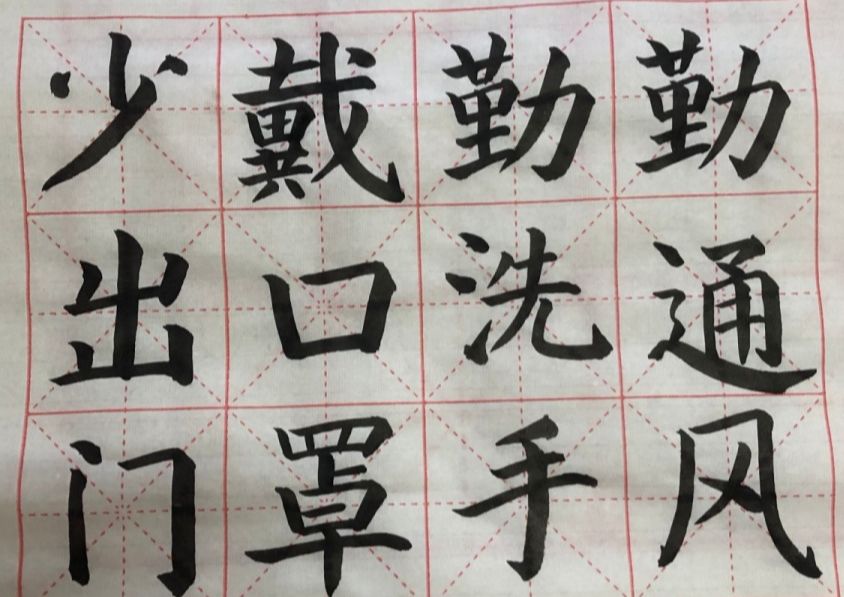 少出门
戴口罩
勤洗手
勤通风